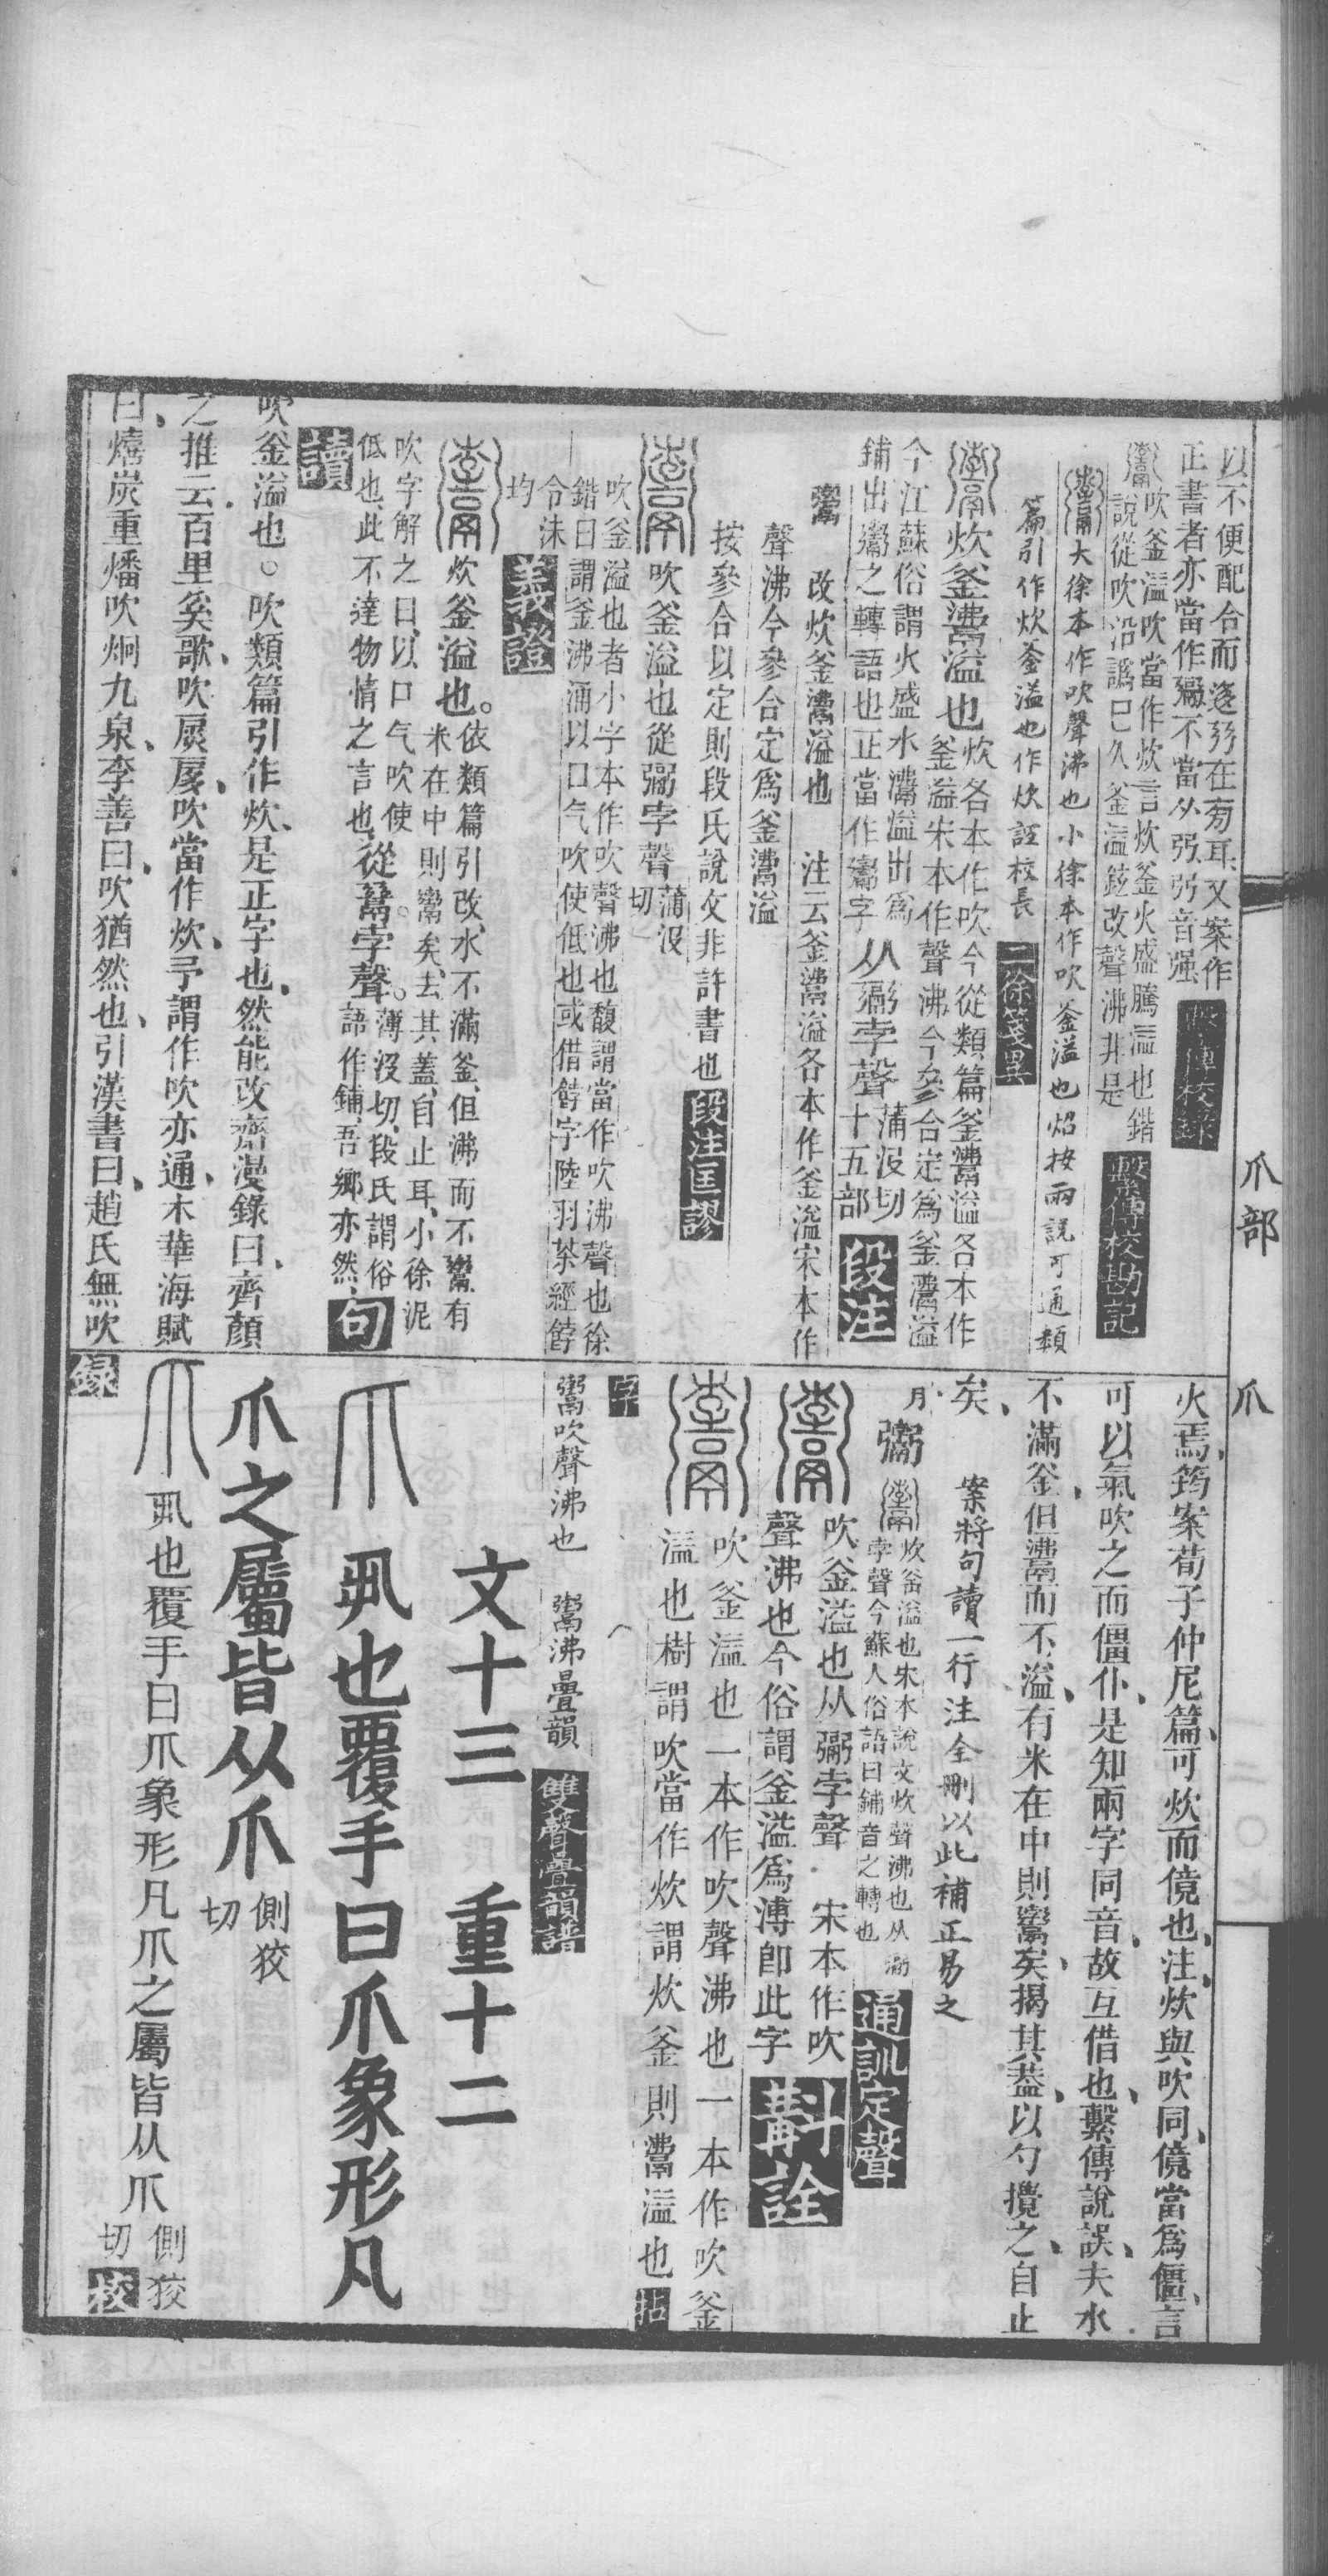 以不便配合而迻弜在旁耳又案作
正書者亦當作䰜不當从弜弜音強
繫傳校錄
吹釜溢吹當作炊言炊釜火盛騰溢也鍇
說從吹沿譌已久釜溢鉉改聲沸非是
繫傳校勘記
大徐本作吹聲沸也小徐本作吹釜溢也炤按兩說可通類
篇引作炊釜溢也作炊註校長
二徐箋異
炊釜鬻溢也
炊各本作吹今從類篇釜鬻溢各本作
釜溢宋本作聲沸今參合定爲釜鬻溢
今江蘇俗謂火盛水鬻溢出爲
鋪出鬻之轉語也正當作鬻字
从䰜孛聲
蒲沒切
十五部
段注
鬻
改炊釜鬻溢也
注云釜鬻溢各本作釜溢宋本作
聲沸今參合定爲釜鬻溢
按參合以定則段氏說文非許書也
段注匡謬
吹釜溢也從䰜孛聲
蒲沒
切
吹釜溢也者小字本作吹聲沸也馥謂當作吹沸聲也徐
鍇曰謂釜沸涌以口气吹使低也或借餑字陸羽茶經餑
令沫
均
義證
炊釜溢也。
依類篇引改、水不滿釜、但沸而不鬻有
米在中則鬻矣、去其蓋、自止耳、小徐泥
吹字解之曰、以口气吹使
低也、此不達物情之言也、
從䰜孛聲。
薄沒切、段氏謂俗
語作鋪、吾鄉亦然、
句
讀
吹釜溢也。吹類篇引作炊、是正字也、然能改齋漫錄曰、齊顏
之推云、百里奚歌、吹扊扅、吹當作炊、予謂作吹亦通、木華海賦
曰、熺炭重燔、吹炯九泉、李善曰、吹猶然也、引漢書曰、趙氏無吹
火焉、筠案荀子仲尼篇、可炊而傹也、注、炊與吹同、傹當爲僵、言
可以氣吹之而僵仆、是知兩字同音、故互借也、繫傳說誤、夫水
不滿釜、但鬻而不溢、有米在中則鬻矣、揭其蓋、以勺攪之、自止
矣、
案將句讀一行注全刪以此補正易之
月
鬻
炊釜溢也宋本說文炊聲沸也从䰜
孛聲今蘇人俗語曰鋪音之轉也
通訓定聲
吹釜溢也从䰜孛聲 宋本作吹
聲沸也今俗謂釜溢爲溥卽此字
斠詮
吹釜溢也一本作吹聲沸也一本作吹釜
溢也樹謂吹當作炊謂炊釜則鬻溢也
拈
字
鬻吹聲沸也 鬻沸疊韻
雙聲疊韻譜
文十三 重十二
丮也覆手曰爪象形凡
爪之屬皆从爪
側狡
切
丮也覆手曰爪象形凡爪之屬皆从爪
側狡
切
校
錄
爪部 爪